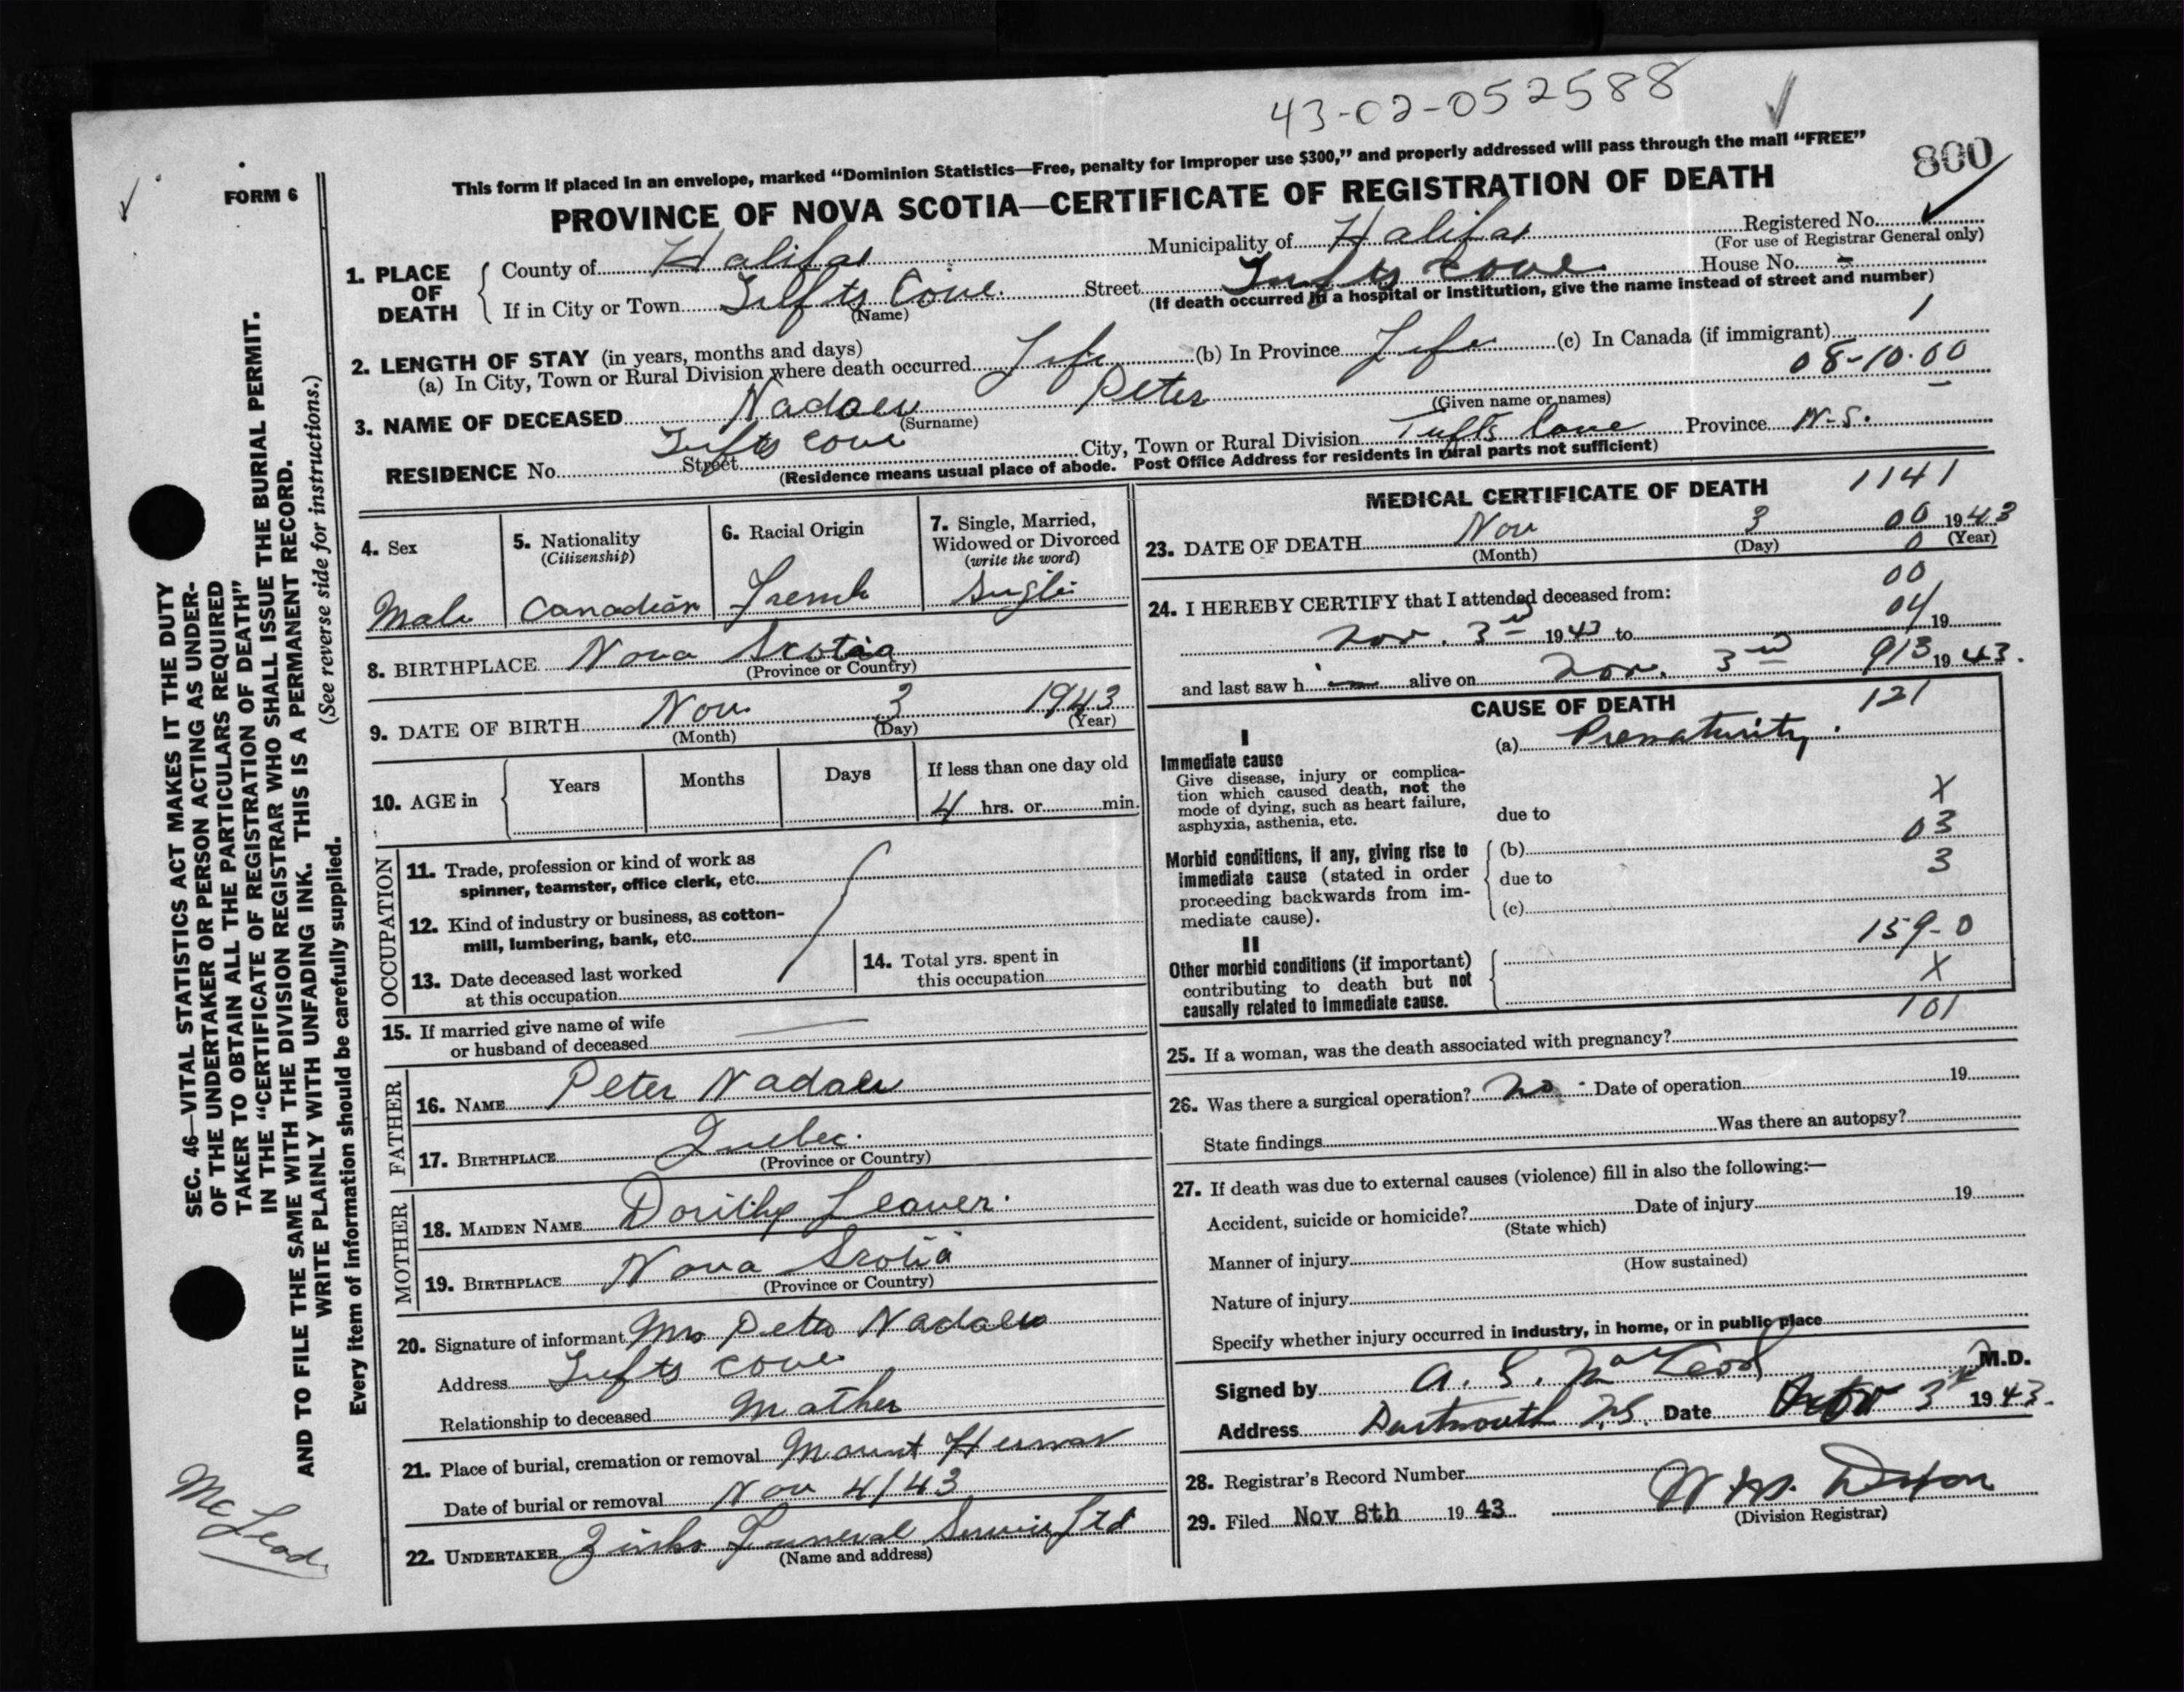 43-02-052588
This form if placed in an envelope, marked "Dominion Statistics—Free, penalty for improper use $300," and properly addressed will pass through the mail "FREE"
800
FORM 6
PROVINCE OF NOVA SCOTIA—CERTIFICATE OF REGISTRATION OF DEATH
Registered No.
(For use of Registrar General only)
1. PLACE OF DEATH
County of Halifax Municipality of Halifax
If in City or Town Tufts Cove Street Tufts Cove House No. -
(Name) (If death occurred in a hospital or institution, give the name instead of street and number)
2. LENGTH OF STAY (in years, months and days) 1
(a) In City, Town or Rural Division where death occurred Life (b) In Province Life (c) In Canada (if immigrant)
08-10-00
3. NAME OF DECEASED Nadaeu Peter
(Surname) (Given name or names)
RESIDENCE No. Street Tufts Cove City, Town or Rural Division Tufts Cove Province N.S.
(Residence means usual place of abode. Post Office Address for residents in rural parts not sufficient)
4. Sex
Male
5. Nationality
(Citizenship)
Canadian
6. Racial Origin
French
7. Single, Married,
Widowed or Divorced
(write the word)
Single
8. BIRTHPLACE Nova Scotia
(Province or Country)
9. DATE OF BIRTH Nov 3 1943
(Month) (Day) (Year)
10. AGE in
Years Months Days If less than one day old
4 hrs. or min.
OCCUPATION
11. Trade, profession or kind of work as
spinner, teamster, office clerk, etc.
12. Kind of industry or business, as cotton-
mill, lumbering, bank, etc.
13. Date deceased last worked
at this occupation
14. Total yrs. spent in
this occupation
15. If married give name of wife
or husband of deceased
FATHER
16. NAME Peter Nadaeu
17. BIRTHPLACE Quebec.
(Province or Country)
MOTHER
18. MAIDEN NAME Dorithy Leaver.
19. BIRTHPLACE Nova Scotia
(Province or Country)
20. Signature of informant Mrs Peter Nadaeu
Address Tufts Cove
Relationship to deceased Mother
21. Place of burial, cremation or removal Mount Herman
Date of burial or removal Nov 4/43
22. UNDERTAKER Zinks Funeral Service Ltd
(Name and address)
MEDICAL CERTIFICATE OF DEATH 1141
23. DATE OF DEATH Nov 3 00 1943
(Month) (Day) 0 (Year)
00
24. I HEREBY CERTIFY that I attended deceased from: 04
Nov. 3rd 1943 to 19
and last saw h im alive on Nov. 3rd 913 1943.
CAUSE OF DEATH 121
I
Immediate cause
Give disease, injury or complica-
tion which caused death, not the
mode of dying, such as heart failure,
asphyxia, asthenia, etc.
(a) Prematurity.
X
due to
03
Morbid conditions, if any, giving rise to
immediate cause (stated in order
proceeding backwards from im-
mediate cause).
(b)
3
due to
(c)
159-0
II
Other morbid conditions (if important)
contributing to death but not
causally related to immediate cause.
X
101
25. If a woman, was the death associated with pregnancy?
26. Was there a surgical operation? No. Date of operation 19
State findings Was there an autopsy?
27. If death was due to external causes (violence) fill in also the following:—
Accident, suicide or homicide? Date of injury 19
(State which)
Manner of injury
(How sustained)
Nature of injury
Specify whether injury occurred in industry, in home, or in public place
Signed by A. S. MacLeod M.D.
Address Dartmouth N.S. Date Nov 3rd 1943.
28. Registrar's Record Number
29. Filed Nov 8th 1943 Dixon
(Division Registrar)
SEC. 46—VITAL STATISTICS ACT MAKES IT THE DUTY
OF THE UNDERTAKER OR PERSON ACTING AS UNDER-
TAKER TO OBTAIN ALL THE PARTICULARS REQUIRED
IN THE "CERTIFICATE OF REGISTRATION OF DEATH"
AND TO FILE THE SAME WITH THE DIVISION REGISTRAR WHO SHALL ISSUE THE BURIAL PERMIT.
WRITE PLAINLY WITH UNFADING INK. THIS IS A PERMANENT RECORD.
Every item of information should be carefully supplied. (See reverse side for instructions.)
McLeod